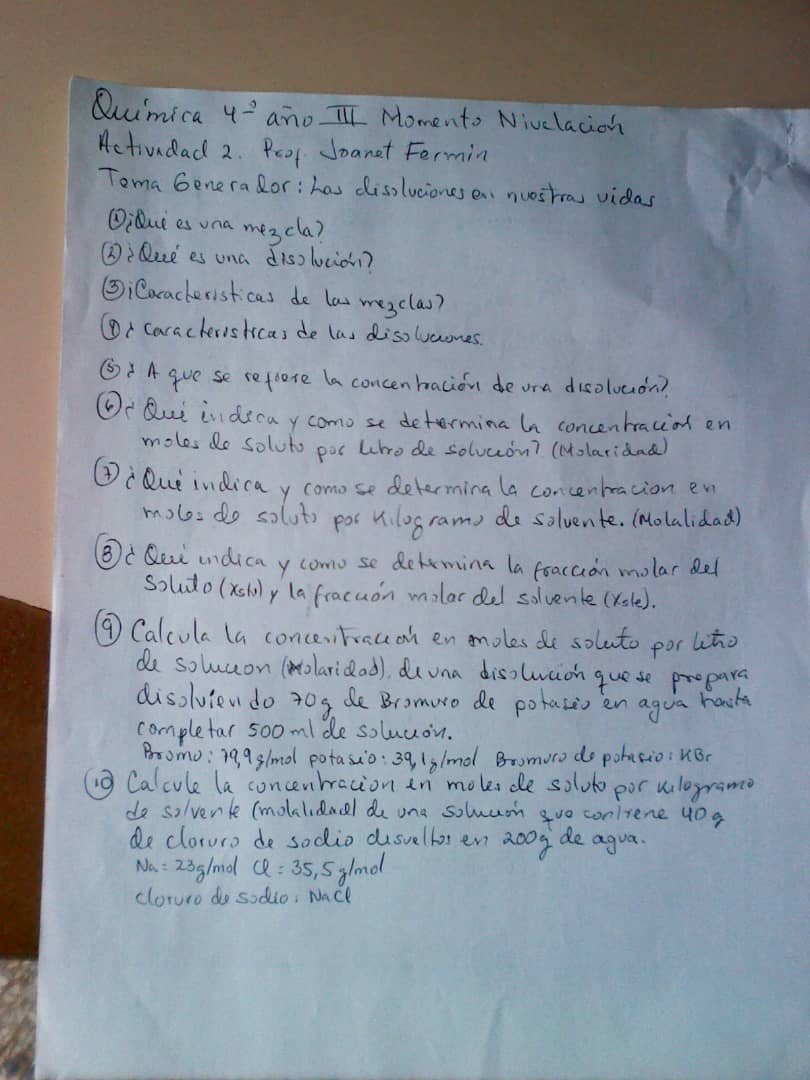 Química 4º año III Momento Nivelación
Actividad 2. Prof. Joanet Fermin
Tema Generador: Las disoluciones en nuestras vidas
① ¿Qué es una mezcla?
② ¿Qué es una disolución?
③ ¿Caracteristicas de las mezclas?
④ ¿ caracteristicas de las disoluciones.
⑤ ¿ A que se refiere la concentración de una disolución?
⑥ ¿ Qué indica y como se determina la concentración en
moles de soluto por litro de solución? (Molaridad)
⑦ ¿ Qué indica y como se determina la concentracion en
moles de soluto por Kilogramo de solvente. (Molalidad)
⑧ ¿ Qué indica y como se determina la fracción molar del
Soluto (Xsto) y la fracción molar del solvente (Xste).
⑨ Calcula la concentración en moles de soluto por litro
de solucion (Molaridad), de una disolución que se prepara
disolviendo 70g de Bromuro de potasio en agua hasta
completar 500 ml de solución.
Bromo: 79,9 g/mol potasio: 39,1 g/mol Bromuro de potasio: KBr
⑩ Calcule la concentracion en moles de soluto por kilogramo
de solvente (molalidad) de una solución que contiene 40 g
de cloruro de sodio disueltos en 200g de agua.
Na = 23g/mol Cl = 35,5 g/mol
cloruro de sodio: NaCl